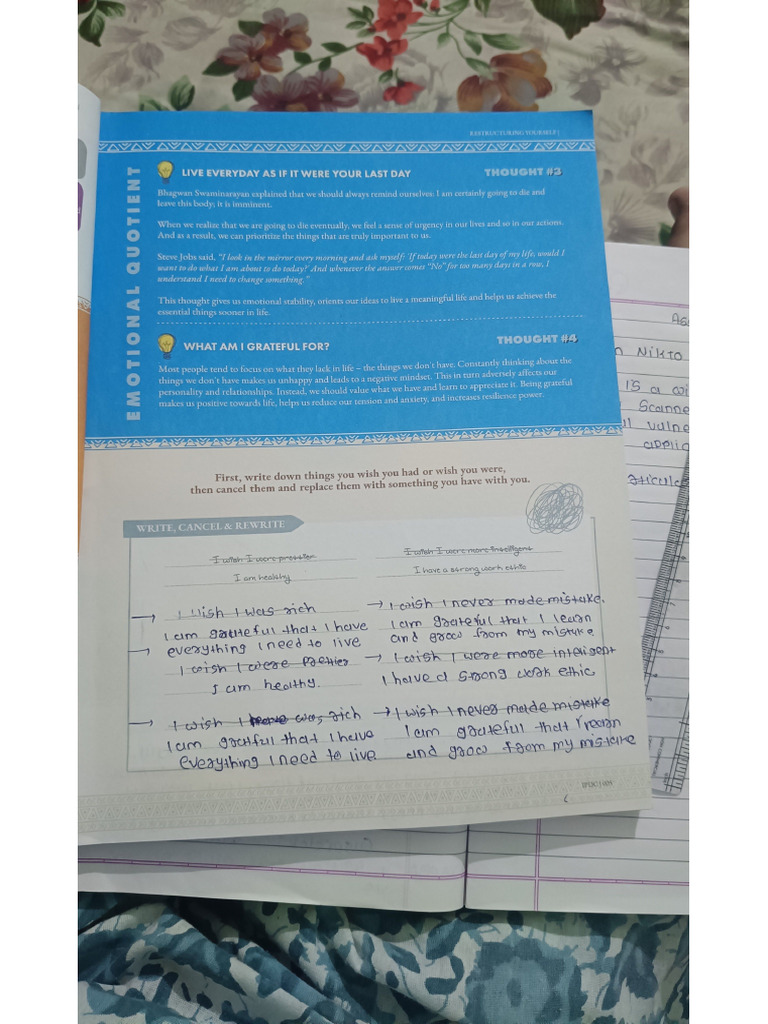 RESTRUCTURING YOURSELF |
EMOTIONAL QUOTIENT
LIVE EVERYDAY AS IF IT WERE YOUR LAST DAY
THOUGHT #3
Bhagwan Swaminarayan explained that we should always remind ourselves: I am certainly going to die and
leave this body; it is imminent.
When we realize that we are going to die eventually, we feel a sense of urgency in our lives and so in our actions.
And as a result, we can prioritize the things that are truly important to us.
Steve Jobs said, "I look in the mirror every morning and ask myself: 'If today were the last day of my life, would I
want to do what I am about to do today?' And whenever the answer comes "No" for too many days in a row, I
understand I need to change something."
This thought gives us emotional stability, orients our ideas to live a meaningful life and helps us achieve the
essential things sooner in life.
WHAT AM I GRATEFUL FOR?
THOUGHT #4
Most people tend to focus on what they lack in life – the things we don't have. Constantly thinking about the
things we don't have makes us unhappy and leads to a negative mindset. This in turn adversely affects our
personality and relationships. Instead, we should value what we have and learn to appreciate it. Being grateful
makes us positive towards life, helps us reduce our tension and anxiety, and increases resilience power.
First, write down things you wish you had or wish you were,
then cancel them and replace them with something you have with you.
WRITE, CANCEL & REWRITE
I wish I were prettier
I am healthy
I wish I were more intelligent
I have a strong work ethic
→ I wish I was rich
I am grateful that I have
→ everything I need to live
I wish I were prettier
I am healthy.
→ I wish I was rich
I am gratful that I have
everything I need to live
→ I wish I never made mistake.
I am grateful that I learn
and grow from my mistake
→ I wish I were more inteligent
I have a strong work ethic
→ I wish I never made mistake
I am grateful that I learn
and grow from my mistake
IPDC |
n Nikto
is a
Scanne
ll vulne
applic